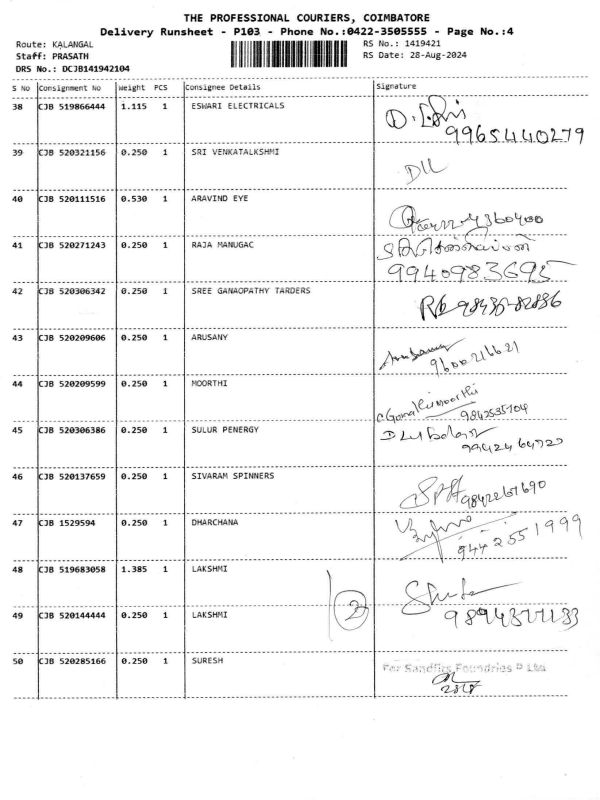 THE PROFESSIONAL COURIERS, COIMBATORE
Delivery Runsheet - P103 - Phone No.:0422-3505555 - Page No.:4
Route: KALANGAL
RS No.: 1419421
Staff: PRASATH
RS Date: 28-Aug-2024
DRS No.: DCJB141942104
S No Consignment No Weight PCS Consignee Details Signature
38 CJB 519866444 1.115 1 ESWARI ELECTRICALS
9965440279
39 CJB 520321156 0.250 1 SRI VENKATALKSHMI
40 CJB 520111516 0.530 1 ARAVIND EYE
41 CJB 520271243 0.250 1 RAJA MANUGAC
9940983695
42 CJB 520306342 0.250 1 SREE GANAOPATHY TARDERS
43 CJB 520209606 0.250 1 ARUSANY
9600216621
44 CJB 520209599 0.250 1 MOORTHI
9842535104
45 CJB 520306386 0.250 1 SULUR PENERGY
46 CJB 520137659 0.250 1 SIVARAM SPINNERS
47 CJB 1529594 0.250 1 DHARCHANA
944 2551999
48 CJB 519683058 1.385 1 LAKSHMI
2
49 CJB 520144444 0.250 1 LAKSHMI
50 CJB 520285166 0.250 1 SURESH
For Sandfits Foundries P Ltd